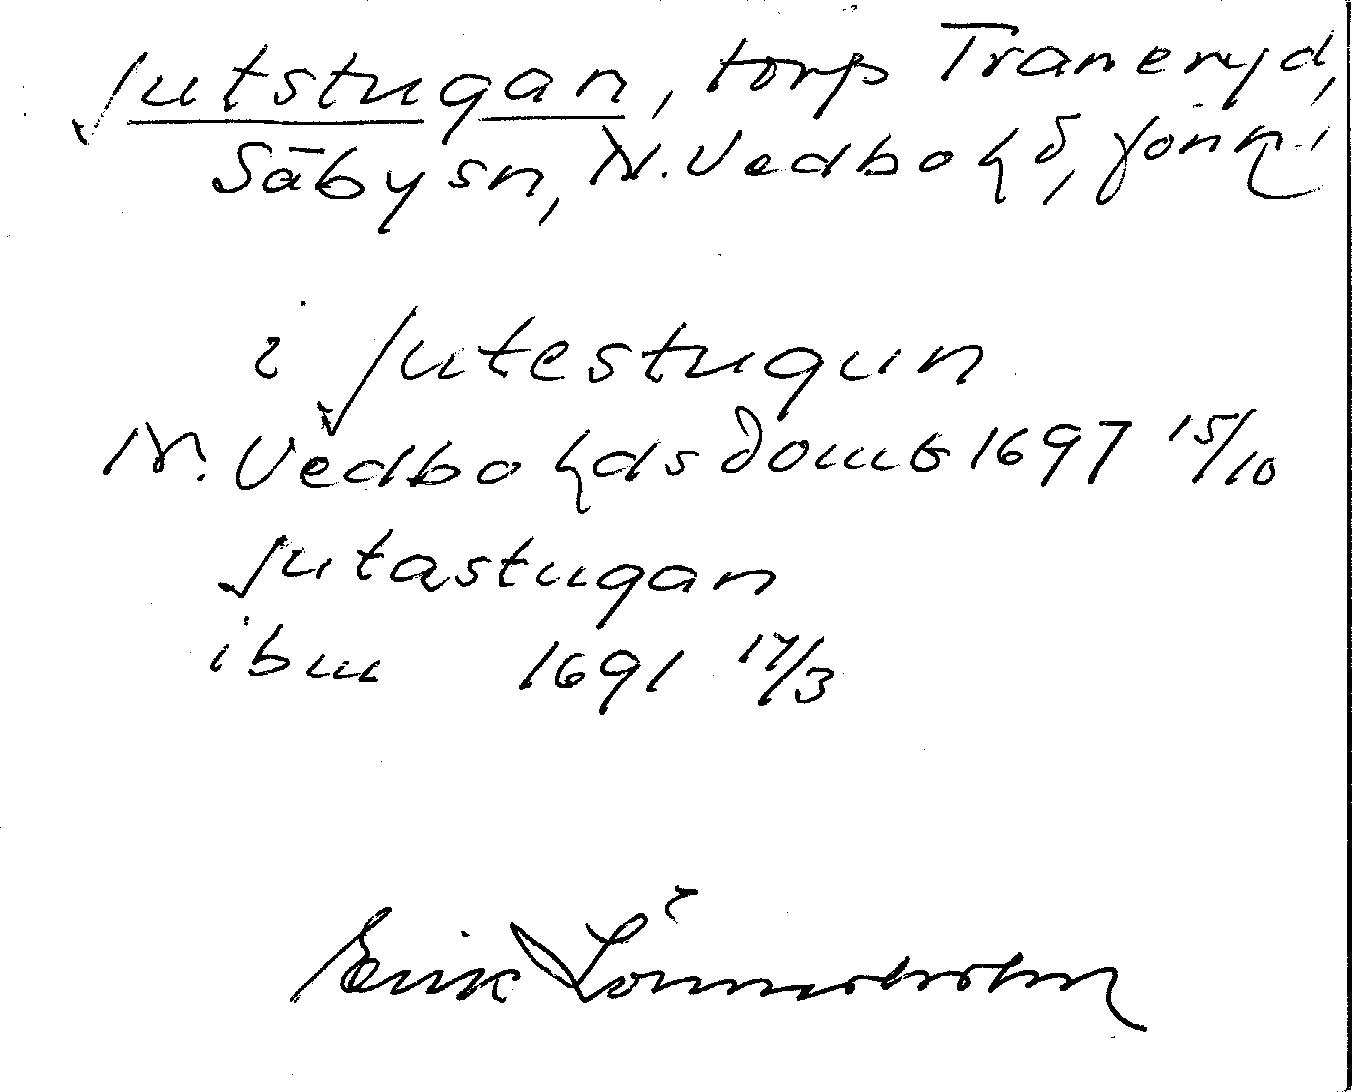 Jutstugan, torp Traneryd,
Säby sn, N. Vedbo hd, Jönk.
i Jutestugun
N. Vedbo hds domb 1697 15/10
Jutastugan
ibm 1691 17/3
Erik Lönnerholm